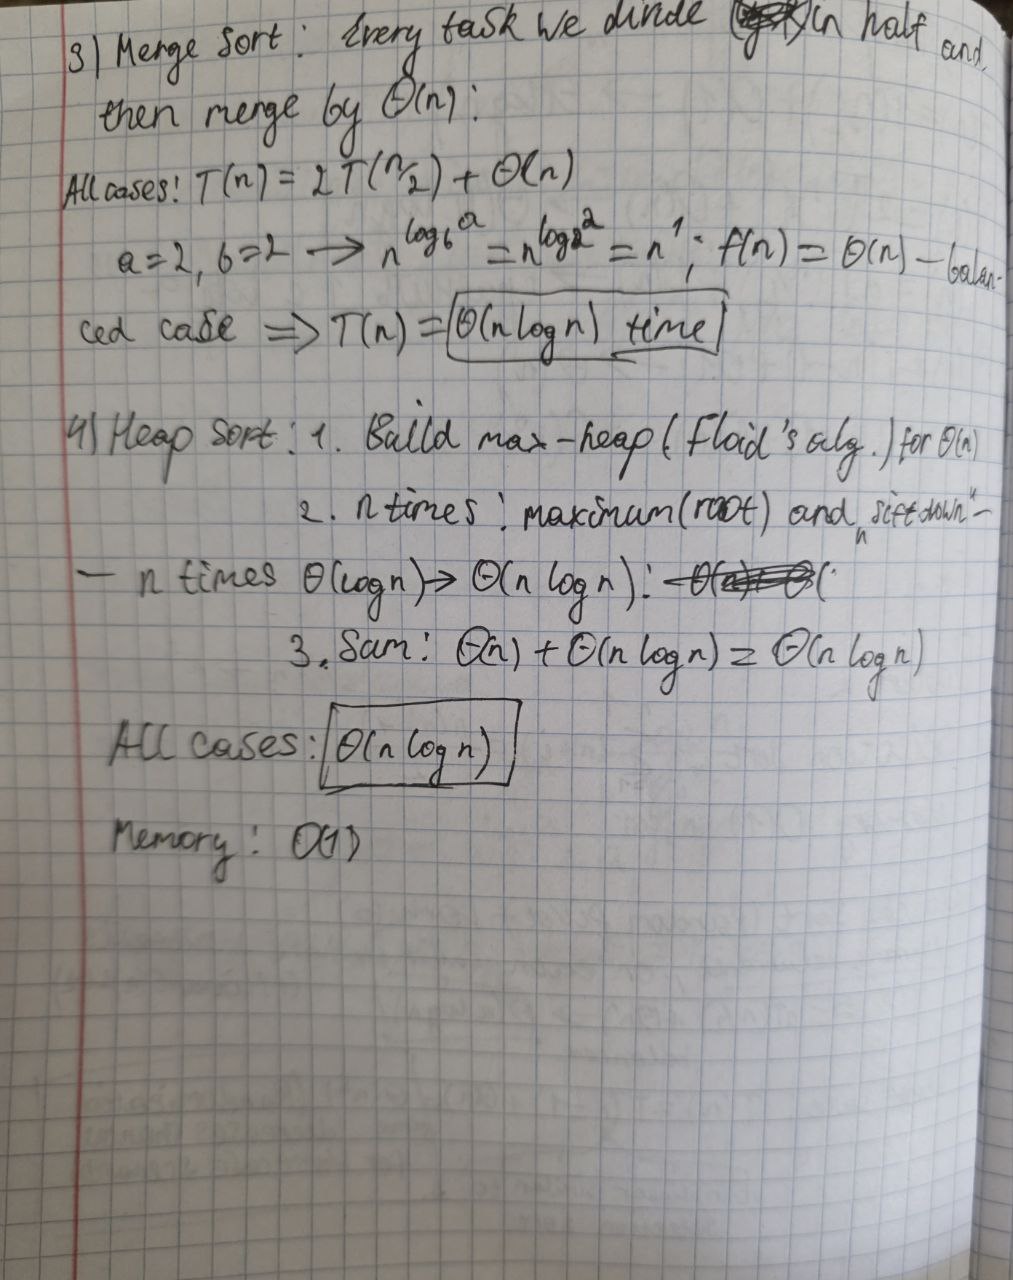 3) Merge Sort: Every task we divide in half and
then merge by Θ(n):
All cases: T(n) = 2T(n/2) + Θ(n)
a=2, b=2 → n^log_b a = n^log_2 2 = n^1; f(n) = Θ(n) – balan-
ced case ⇒ T(n) = Θ(n log n) time
4) Heap Sort: 1. Build max-heap (Floid's alg.) for Θ(n)
2. n times: maximum(root) and „siftdown" –
– n times Θ(log n) → Θ(n log n):
3. Sum: Θ(n) + Θ(n log n) = Θ(n log n)
All cases: Θ(n log n)
Memory: Θ(1)